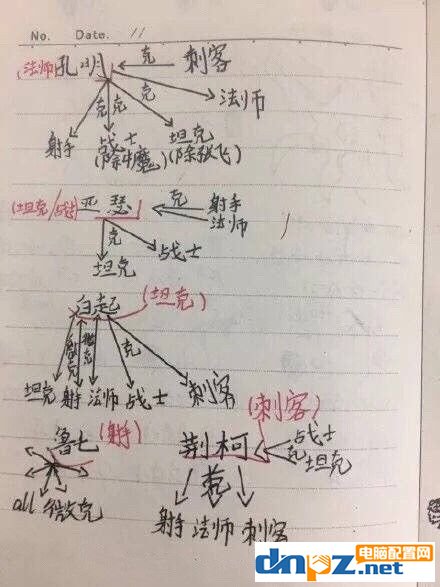 No. Date. //
(法师) 孔明 克 刺客
克 克 克 法师
射手 战士 坦克
(除牛魔) (除张飞)
(坦克/战士) 亚瑟 克 射手
法师
克 战士
坦克
白起 (坦克)
微克 微克 克
坦克 射手 法师 战士 刺客
鲁七 (射手) 荆柯 (刺客) 战士
克 坦克
all 微克 克
射手 法师 刺客
电脑配置网
dnpz.net